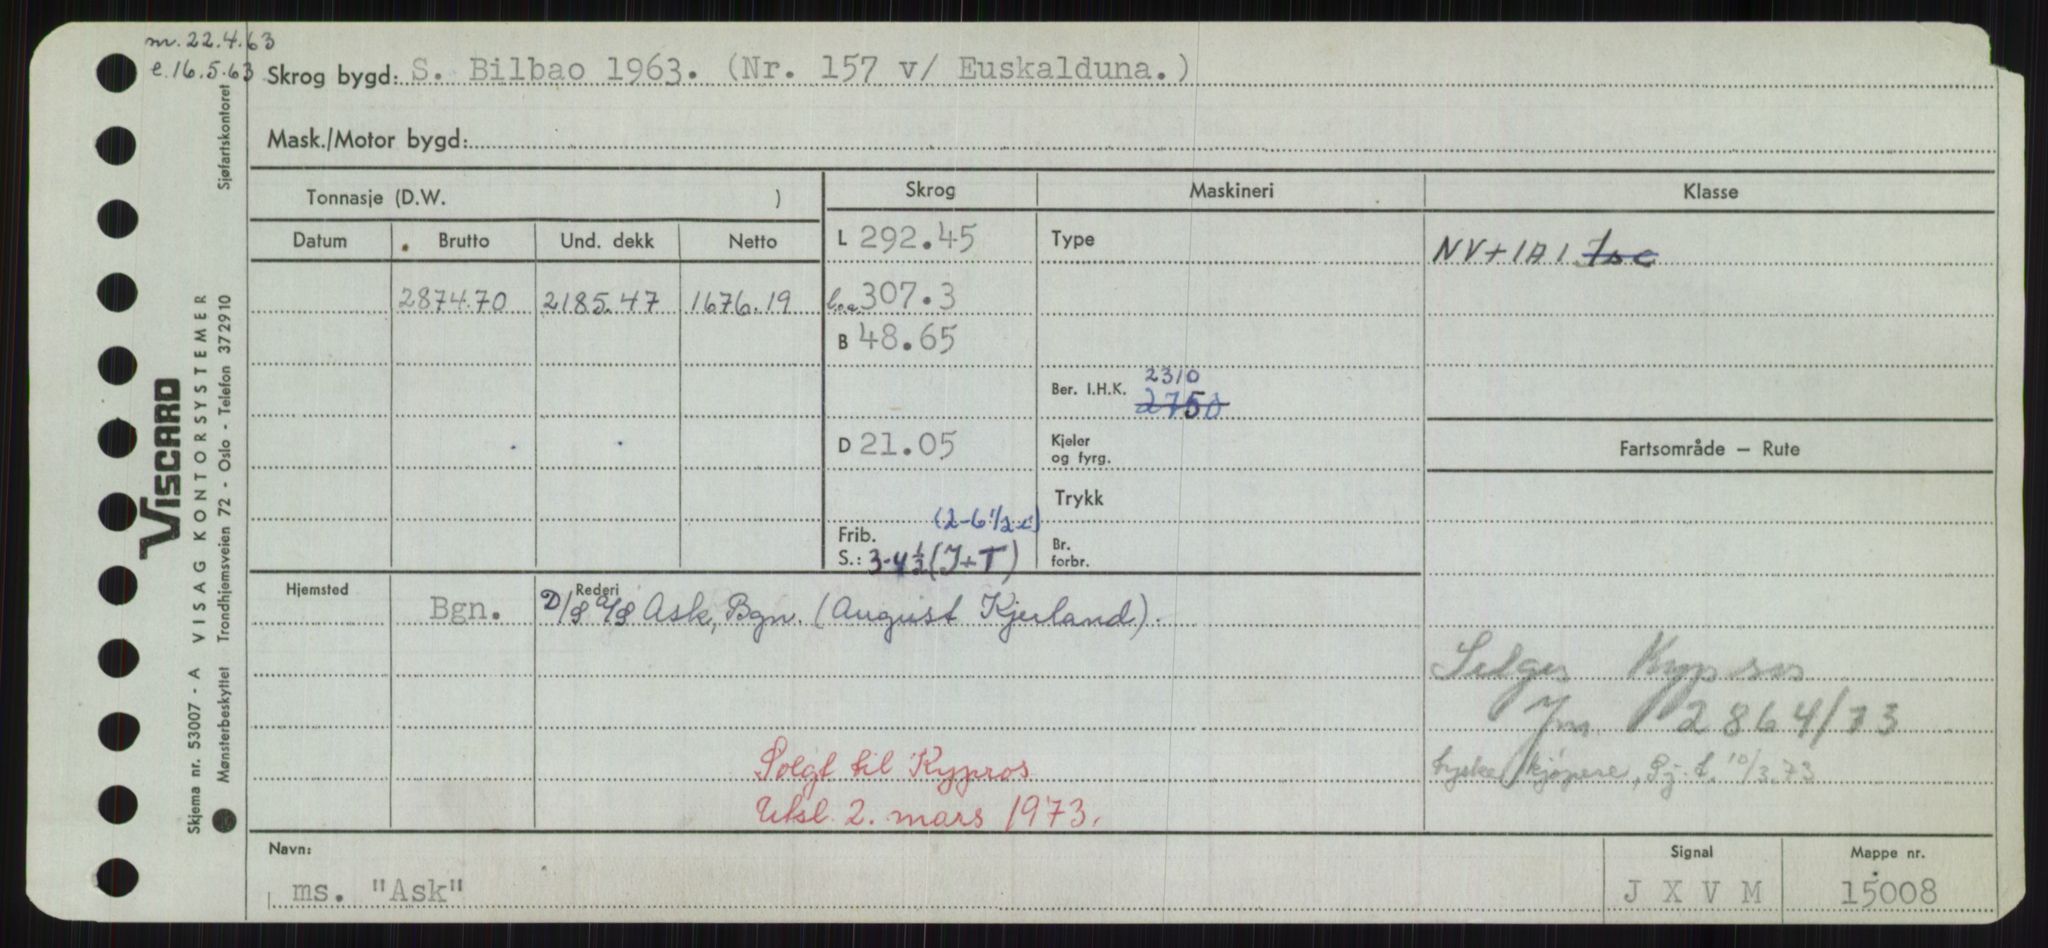 m. 22.4.63
e. 16.5.63
Skrog bygd: S. Bilbao 1963. (Nr. 157 v/ Euskalduna.)
Mask./Motor bygd:
Tonnasje (D.W. )
Skrog Maskineri Klasse
Datum Brutto Und. dekk Netto
L 292.45
Type
NV+1A1 Isc
2874.70 2185.47 1676.19
loa 307.3
B 48.65
Ber. I.H.K. 2310
2750
D 21.05
Kjeler
og fyrg.
Fartsområde — Rute
Trykk
(2-6 1/2 i)
Frib.
S.: 3-4 1/2 (I+T)
Br.
forbr.
Hjemsted Rederi
Bgn. D/S A/S Ask, Bgn. (August Kjerland).
Selges Kypros
Jm 2864/73
tyske kjøpere, Sj.t. 10/3.73
Solgt til Kypros
Utsl. 2. mars 1973.
Navn: Signal Mappe nr.
ms. "Ask" J X V M 15008
VISCARD
Skjema nr. 53007 - A VISAG KONTORSYSTEMER
Mønsterbeskyttet Trondhjemsveien 72 - Oslo - Telefon 372910 Sjøfartskontoret